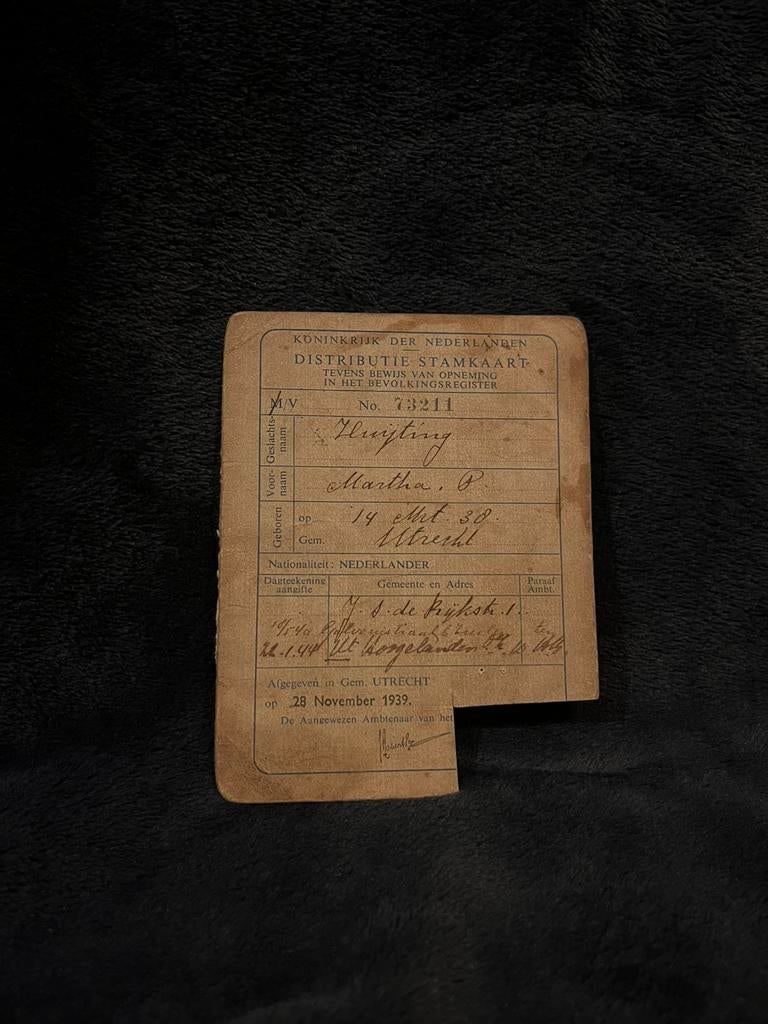 KONINKRIJK DER NEDERLANDEN
DISTRIBUTIE STAMKAART
TEVENS BEWIJS VAN OPNEMING
IN HET BEVOLKINGSREGISTER
M/V No. 73211
Geslachtsnaam Huijting
Voornaam Martha. P.
Geboren op 14 Mrt. 38.
Gem. Utrecht
Nationaliteit: NEDERLANDER
Dagteekening aangifte Gemeente en Adres Paraaf Ambt.
J. S. de Rijkstr. 1.
22.1.44 Ut
Afgegeven in Gem. UTRECHT
op 28 November 1939.
De Aangewezen Ambtenaar van het